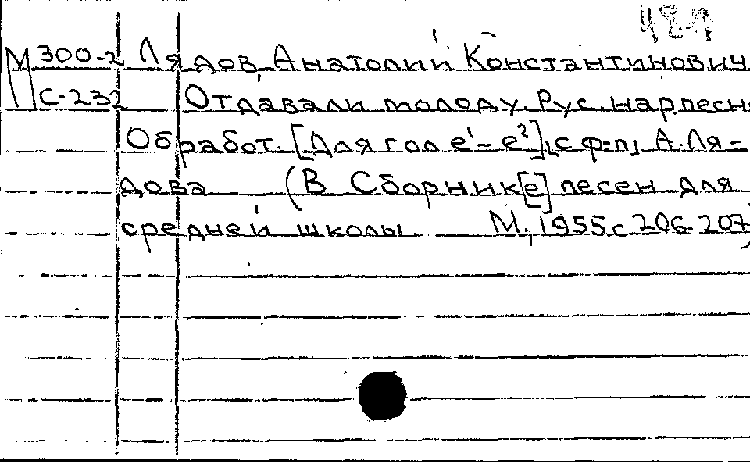 М 300-2 Лядов, Анатолий Константинович
С-232 Отдавали молоду. Рус. нар. песня
Обработ. [Для гол. e¹-e²], с ф-п, А. Ля-
дова (В Сборник[е] песен для
средней школы М., 1955 с 206-207)